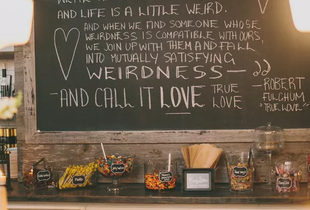 AND LIFE IS A LITTLE WEIRD.
AND WHEN WE FIND SOMEONE WHOSE
WEIRDNESS IS COMPATIBLE WITH OURS,
WE JOIN UP WITH THEM AND FALL
INTO MUTUALLY SATISFYING
WEIRDNESS—
—AND CALL IT LOVE TRUE LOVE
—ROBERT
FULGHUM
"TRUE LOVE"